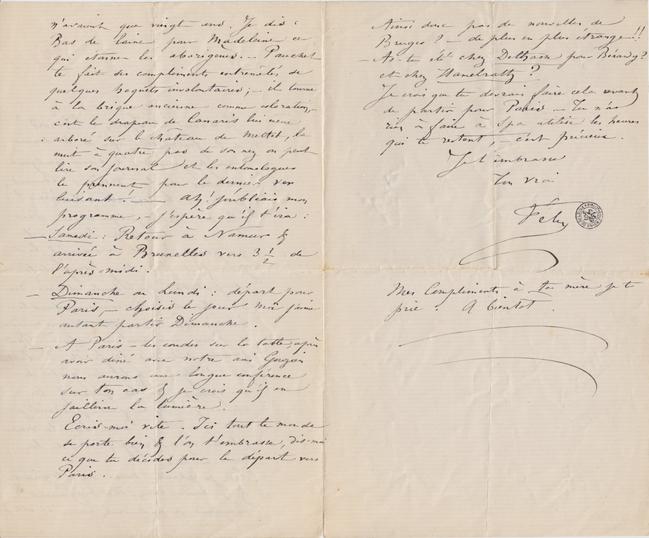 n'avaient que vingt ans. Je dis :
Bas de laine pour Madeleine ce
qui étonne les aborigènes. — Pauchet
te fait des compliments entremêlés de
quelques hoquets involontaires ; — il tourne
à la brique ancienne comme coloration,
c'est le drapeau de Canaris lui-même
arboré sur le château de la
nuit à quatre pas de son nez on peut
lire son journal et les entomologues
le prennent pour le dernier ver
luisant ! — Ah ! j'oubliais mon
programme, — j'espère qu'il t'ira :
— Samedi : Retour à Namur &
arrivée à Bruxelles vers 3 1/2 de
l'après-midi.
— Dimanche ou Lundi : départ pour
Paris, — choisis le jour moi j'aime
autant partir Dimanche.
— A Paris — les coudes sur la table après
avoir diné avec notre ami
nous aurons une longue conférence
sur ton cas & je crois qu'il en
jaillira la lumière.
Ecris-moi vite. Ici tout le monde
se porte bien & l'on t'embrasse, dis-moi
ce que tu décides pour le départ vers
Paris.
Ainsi donc pas de nouvelles de
Bruges ? — de plus en plus étrange !!
— As-tu été chez pour
et chez ?
Je crois que tu devrais faire cela avant
de partir pour Paris — Tu n'as
rien à faire à Spa utilise les heures
qui te restent, c'est précieux.
Je t'embrasse
Ton vrai
Fély
Mes Compliments à ta mère je te
prie. A bientot.